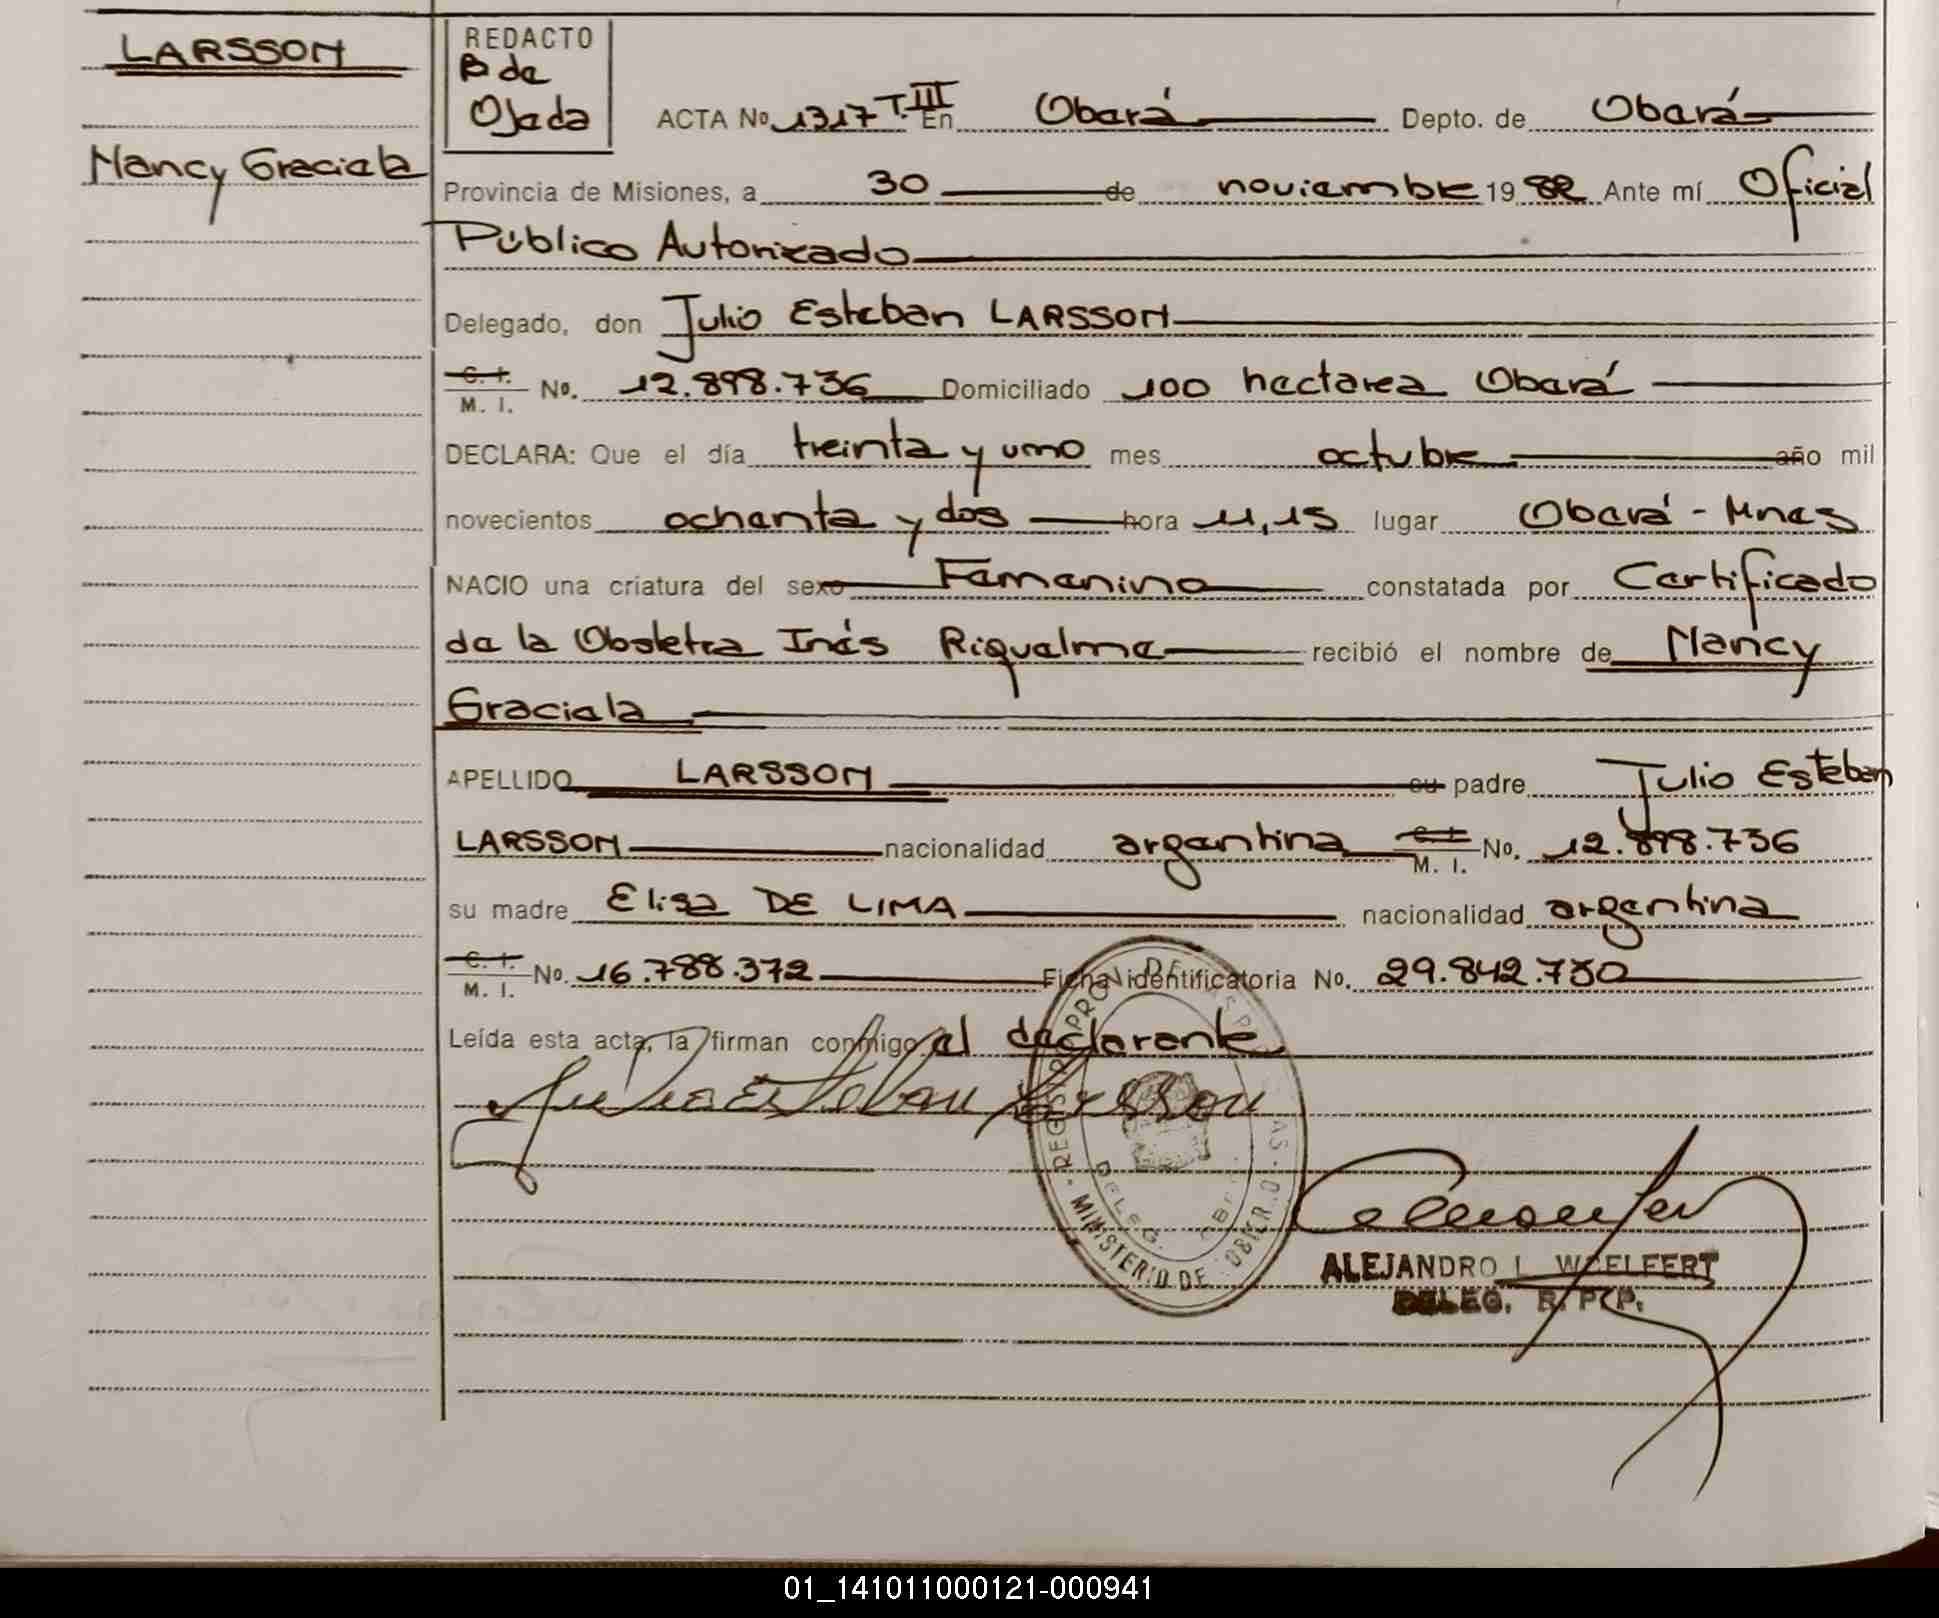 LARSSON
Nancy Graciela
REDACTO
B de
Ojeda
ACTA No 1317 T.III En Oberá Depto. de Oberá
Provincia de Misiones, a 30 de noviembre 1982 Ante mí Oficial
Público Autorizado
Delegado, don Julio Esteban LARSSON
C. I.
M. I. No. 12.898.736 Domiciliado 100 hectarea Oberá
DECLARA: Que el día treinta y uno mes octubre año mil
novecientos ochenta y dos hora 11,15 lugar Oberá - Mnes
NACIO una criatura del sexo Femenino constatada por Certificado
de la Obstetra Inés Riquelme recibió el nombre de Nancy
Graciela
APELLIDO LARSSON su padre Julio Esteban
LARSSON nacionalidad argentina C. I. M. I. No. 12.898.736
su madre Elisa DE LIMA nacionalidad argentina
C. I.
M. I. No. 16.788.372 Ficha identificatoria No. 29.842.730
Leída esta acta, la firman conmigo el declarante
Julio Esteban Larsson
REGISTRO PROV. DE LAS PERSONAS
DELEG. OBERÁ
MINISTERIO DE GOBIERNO
ALEJANDRO L. WOELFERT
DELEG. R. P. P.
01_141011000121-000941